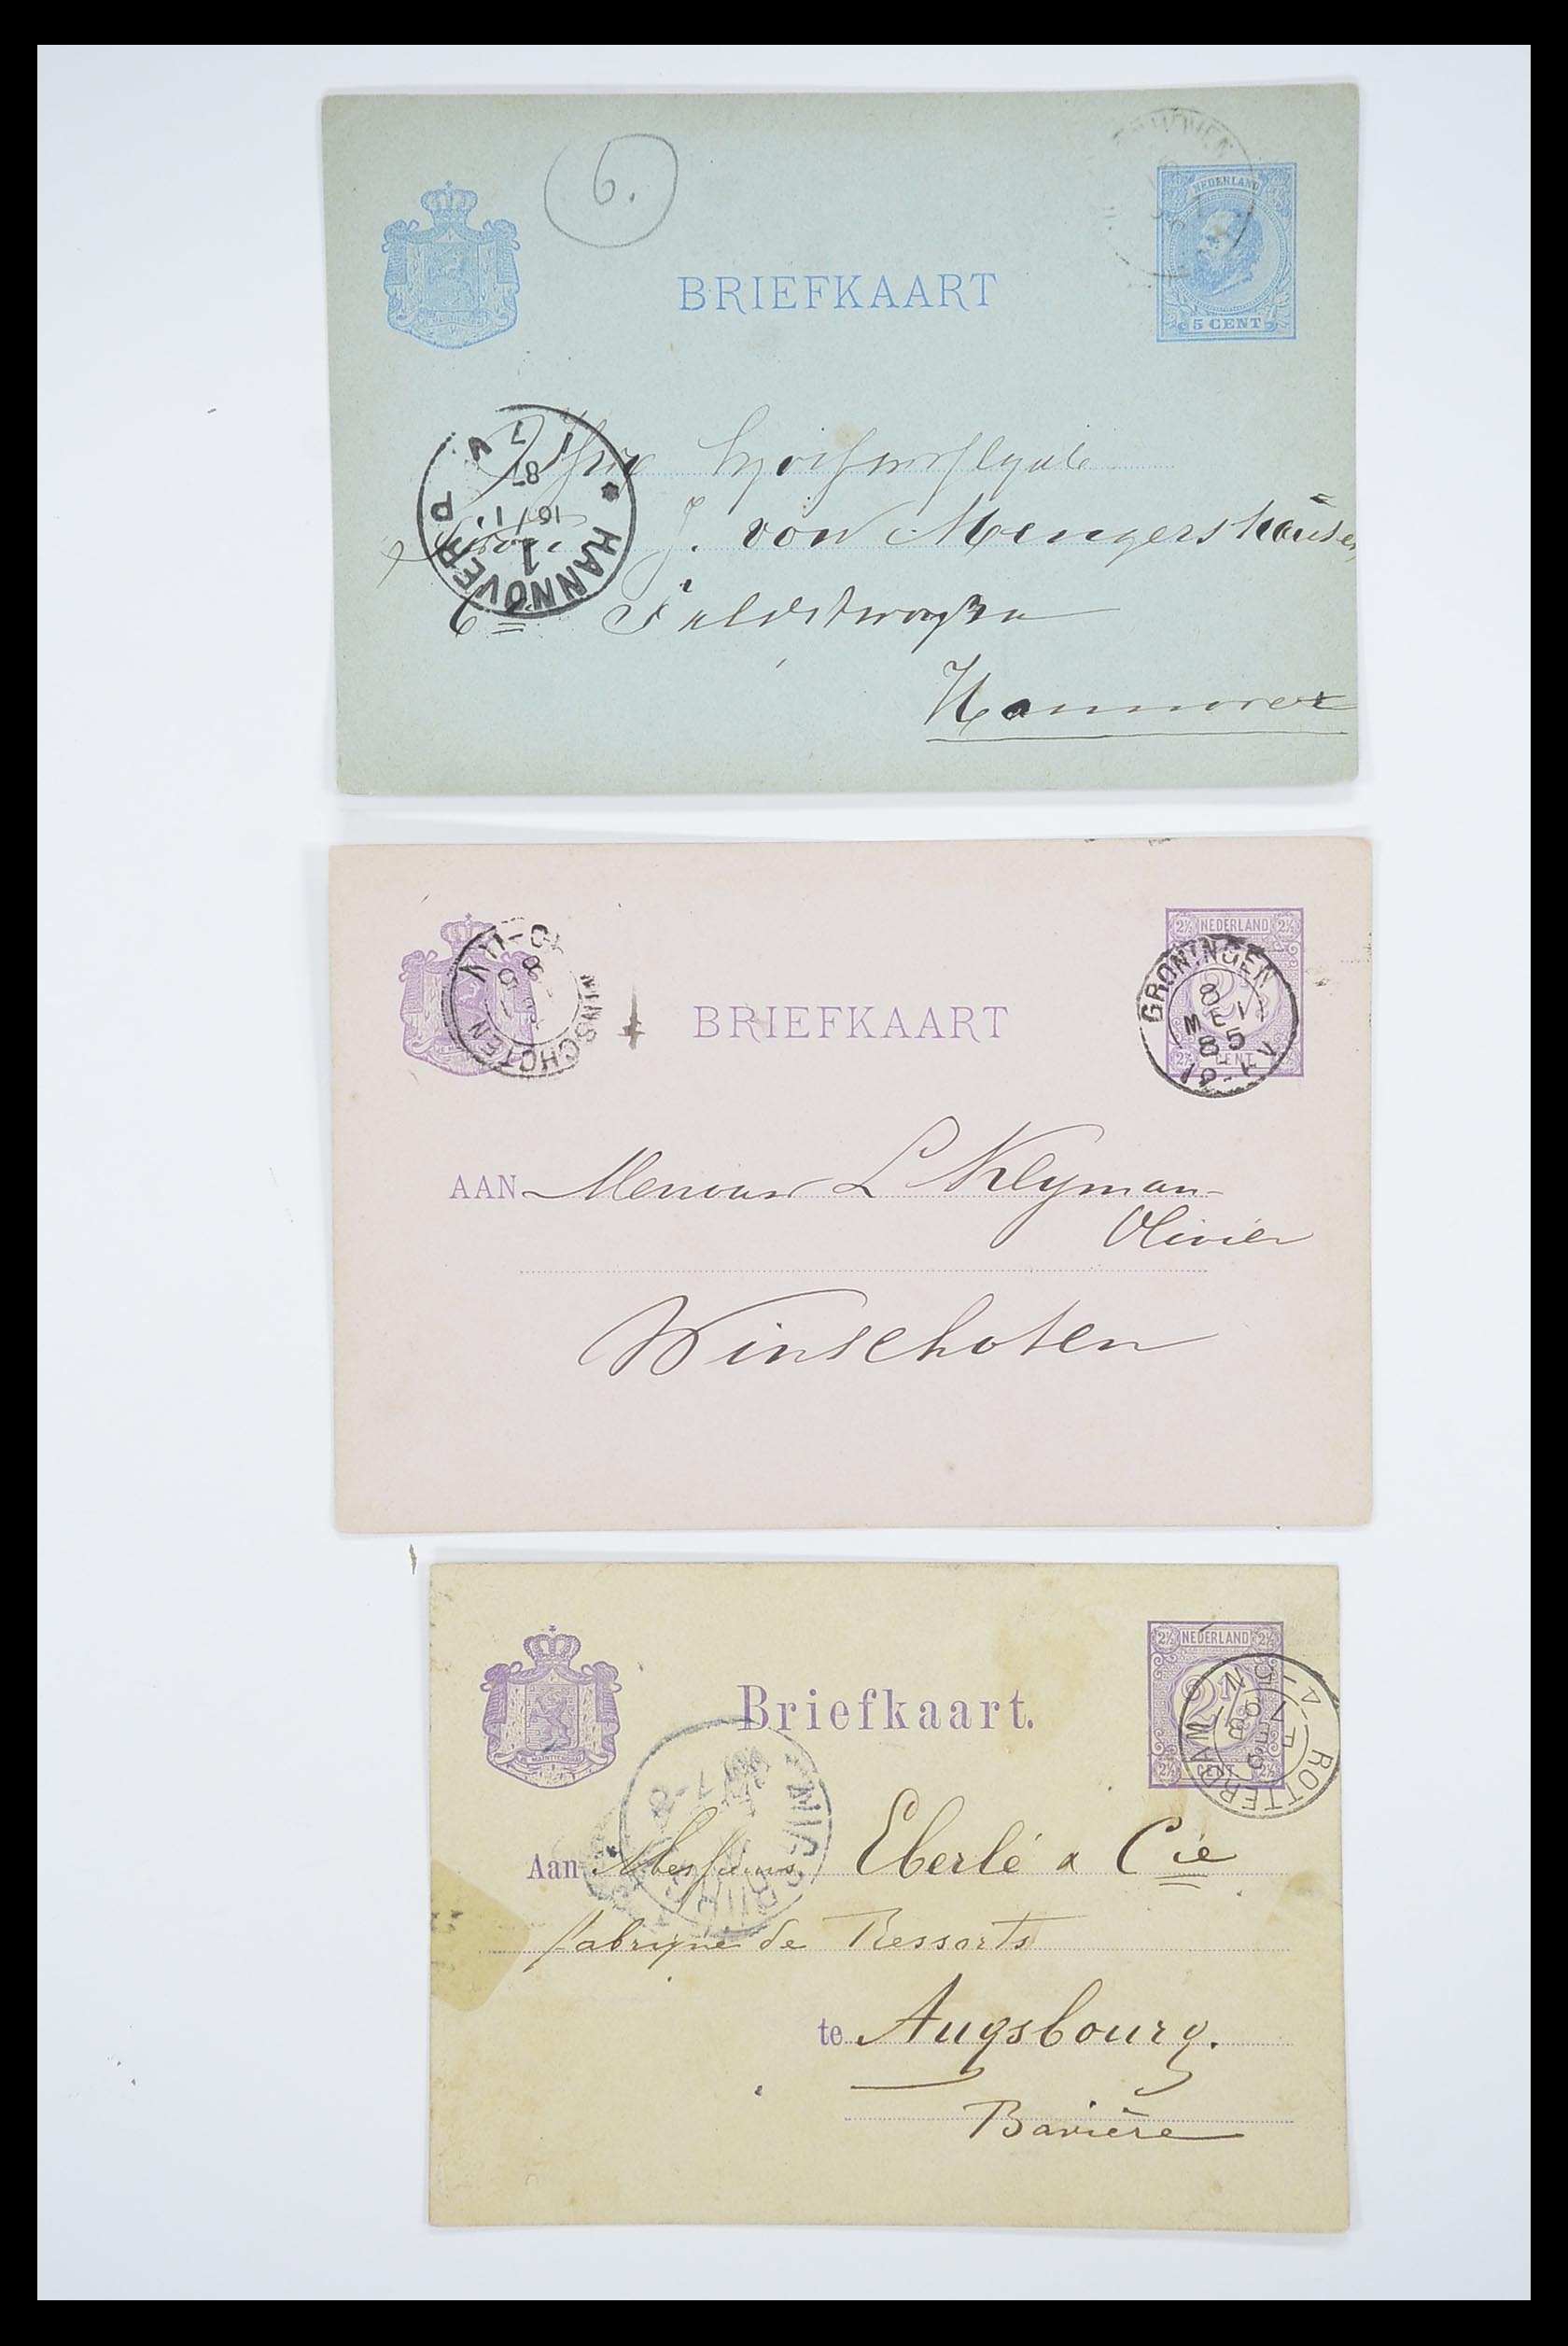 6.
NEDERLAND
BRIEFKAART
5 CENT
HANNOVER P
1
16/1
87
7
V
J. von Mengershause
Hannover
2½ NEDERLAND 2½
WINSCHOTEN
GRONINGEN
8
MEI
85
BRIEFKAART
CENT
AAN Mevrouw L Kleyman-
Olivier
Winschoten
2½ NEDERLAND 2½
2½
Briefkaart.
2½ CENT 2½
ROTTERDAM
Aan Messieurs Eberlé & Cie
fabrique de Ressorts
te Augsbourg.
Bavière